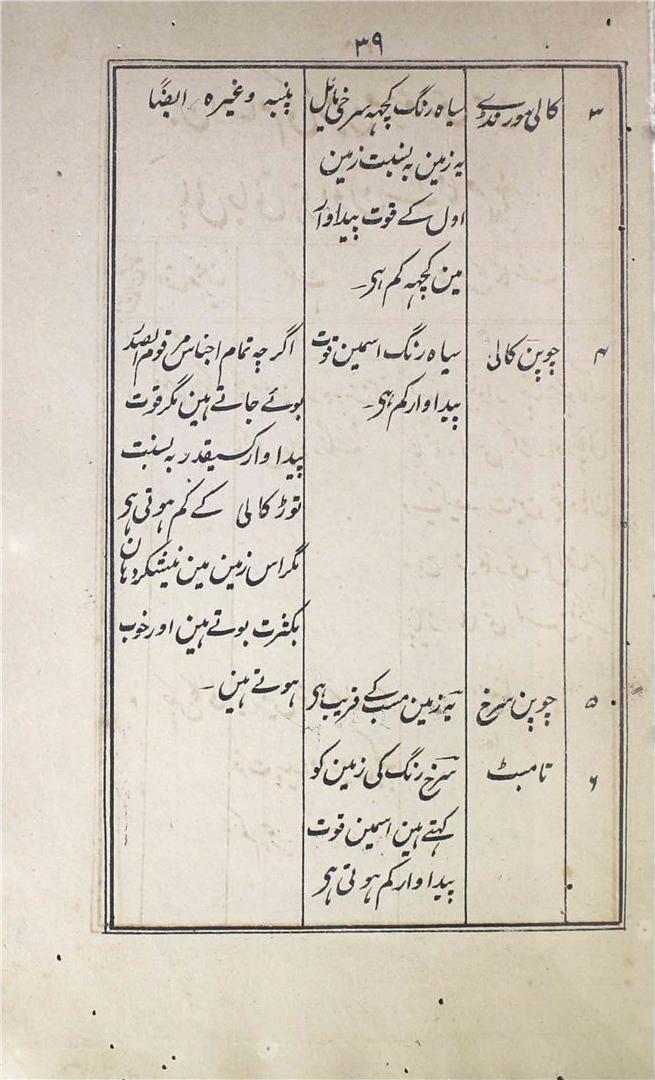 ۳۹
۳ کالی مورنڈے سیاہ رنگ کچہہ سرخی مائیل پنبہ وغیرہ ایضًا
یہ زمین بہ نسبت زمین
اول کے قوت پیداوار
مین کچہہ کم ہی۔
۴ چوپن کالی سیاہ رنگ اسمین قوت اگرچہ تمام اجناس مرقوم الصدر
پیداوار کم ہی۔ بوئے جاتے ہین مگر قوت
پیداوار کسیقدر بہ نسبت
توڑ کالی کے کم ہوتی ہی
مگر اس زمین مین نیشکر دہان
بکثرت بوتے ہین اور خوب
۵ چوپن سرخ یہ زمین مسب کے قریب ہی ہوتے ہین۔
۶ تامبٹ سرخ رنگ کی زمین کو
کہتے ہین اسمین قوت
پیداوار کم ہوتی ہی